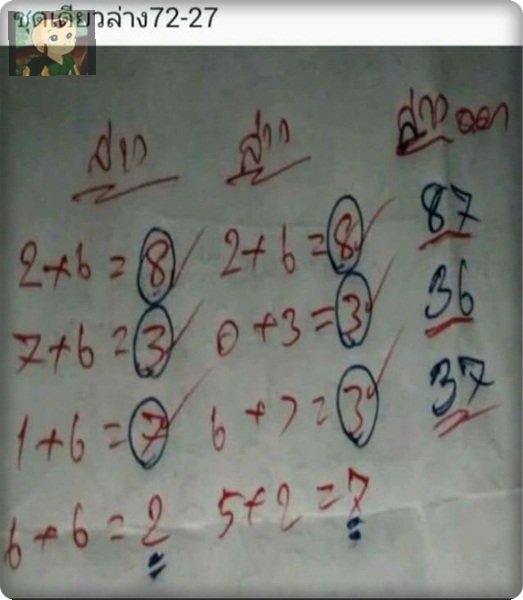 ชุดเดียวล่าง72-27
ล่าง ล่าง ล่าง ออก
2+6=8 2+6=8 87
7+6=3 0+3=3 36
1+6=7 6+7=3 37
6+6=2 5+2=7